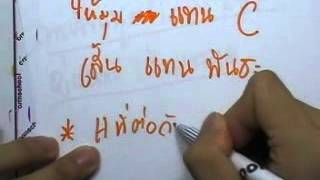 ให้มุม แทน C
เส้น แทน พันธะ
* H ที่ต่อกั